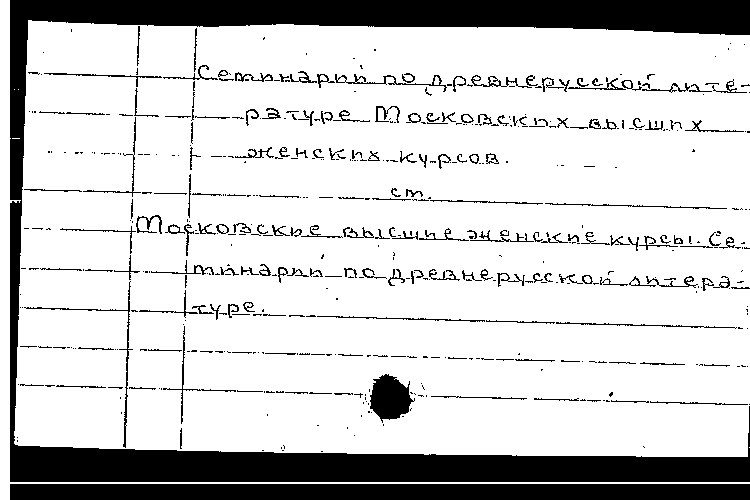 Семинарии по древнерусской лите-
ратуре Московских высших
женских курсов.
см.
Московские высшие женские курсы. Се-
минарии по древнерусской литера-
туре.